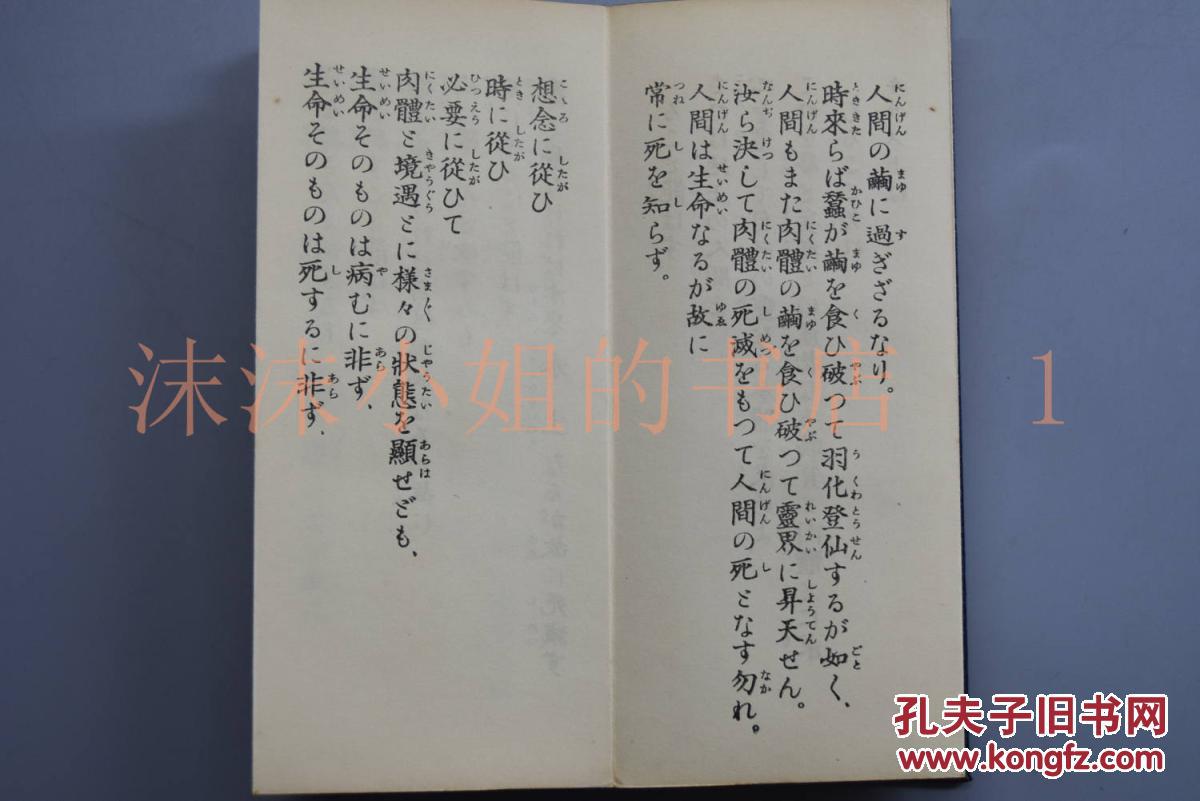 人間の繭に過ぎざるなり。
時來らば蠶が繭を食ひ破つて羽化登仙するが如く、
人間もまた肉體の繭を食ひ破つて靈界に昇天せん。
汝ら決して肉體の死滅をもつて人間の死となす勿れ。
人間は生命なるが故に
常に死を知らず。
想念に從ひ
時に從ひ
必要に從ひて
肉體と境遇とに様々の狀態を顯せども、
生命そのものは病むに非ず、
生命そのものは死するに非ず、
沫沫小姐的书店 1
孔夫子旧书网
www.kongfz.com